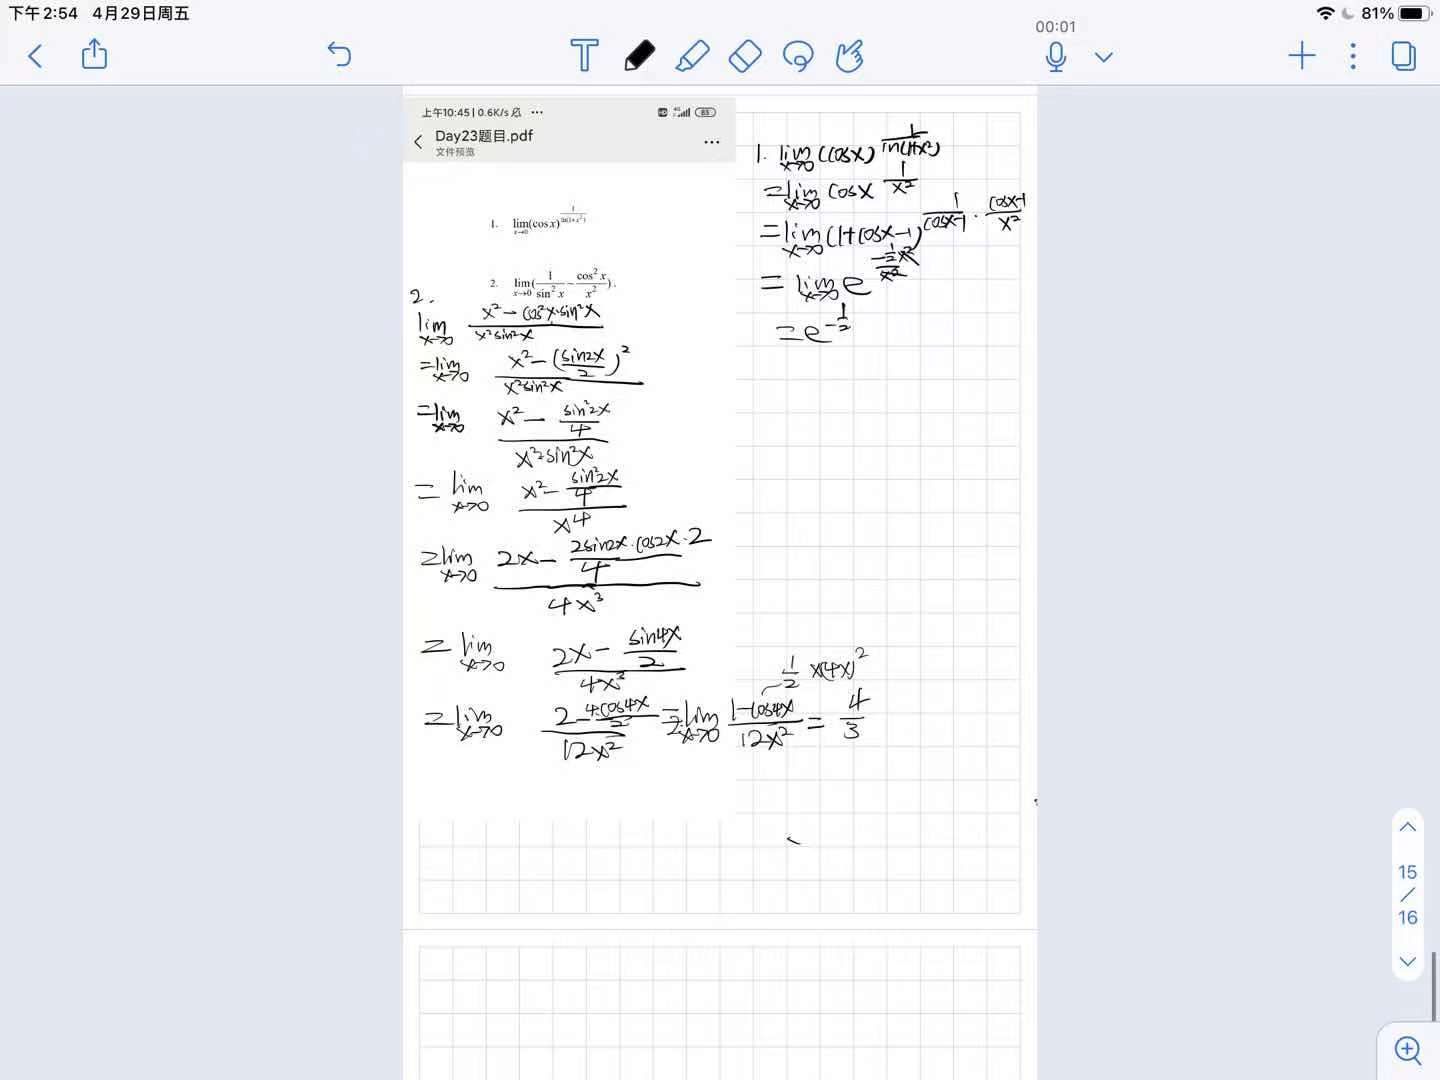 下午2:54 4月29日周五
81%
00:01
上午10:45 | 0.6K/s
83
Day23题目.pdf
文件预览
1. lim x→0 (cos x)^(1/ln(1+x²))
2. lim x→0 (1/sin² x − cos² x/x²).
2.
lim x→0 (x² − cos²x·sin²x)/(x²sin²x)
= lim x→0 (x² − (sin2x/2)²)/(x²sin²x)
= lim x→0 (x² − sin²2x/4)/(x²·sin²x)
= lim x→0 (x² − sin²2x/4)/x⁴
= lim x→0 (2x − 2sin2x·cos2x·2/4)/(4x³)
= lim x→0 (2x − sin4x/2)/(4x³)
= lim x→0 (2 − 4·cos4x/2)/(12x²) = 2 lim x→0 (1−cos4x)/(12x²) = 4/3
1/2 x(4x)²
1. lim x→0 (cosx)^(1/ln(1+x²))
= lim x→0 cosx^(1/x²)
= lim x→0 (1+cosx−1)^(1/(cosx−1) · (cosx−1)/x²)
= lim x→0 e^(−½x²/x²)
= e^(−1/2)
15
/
16